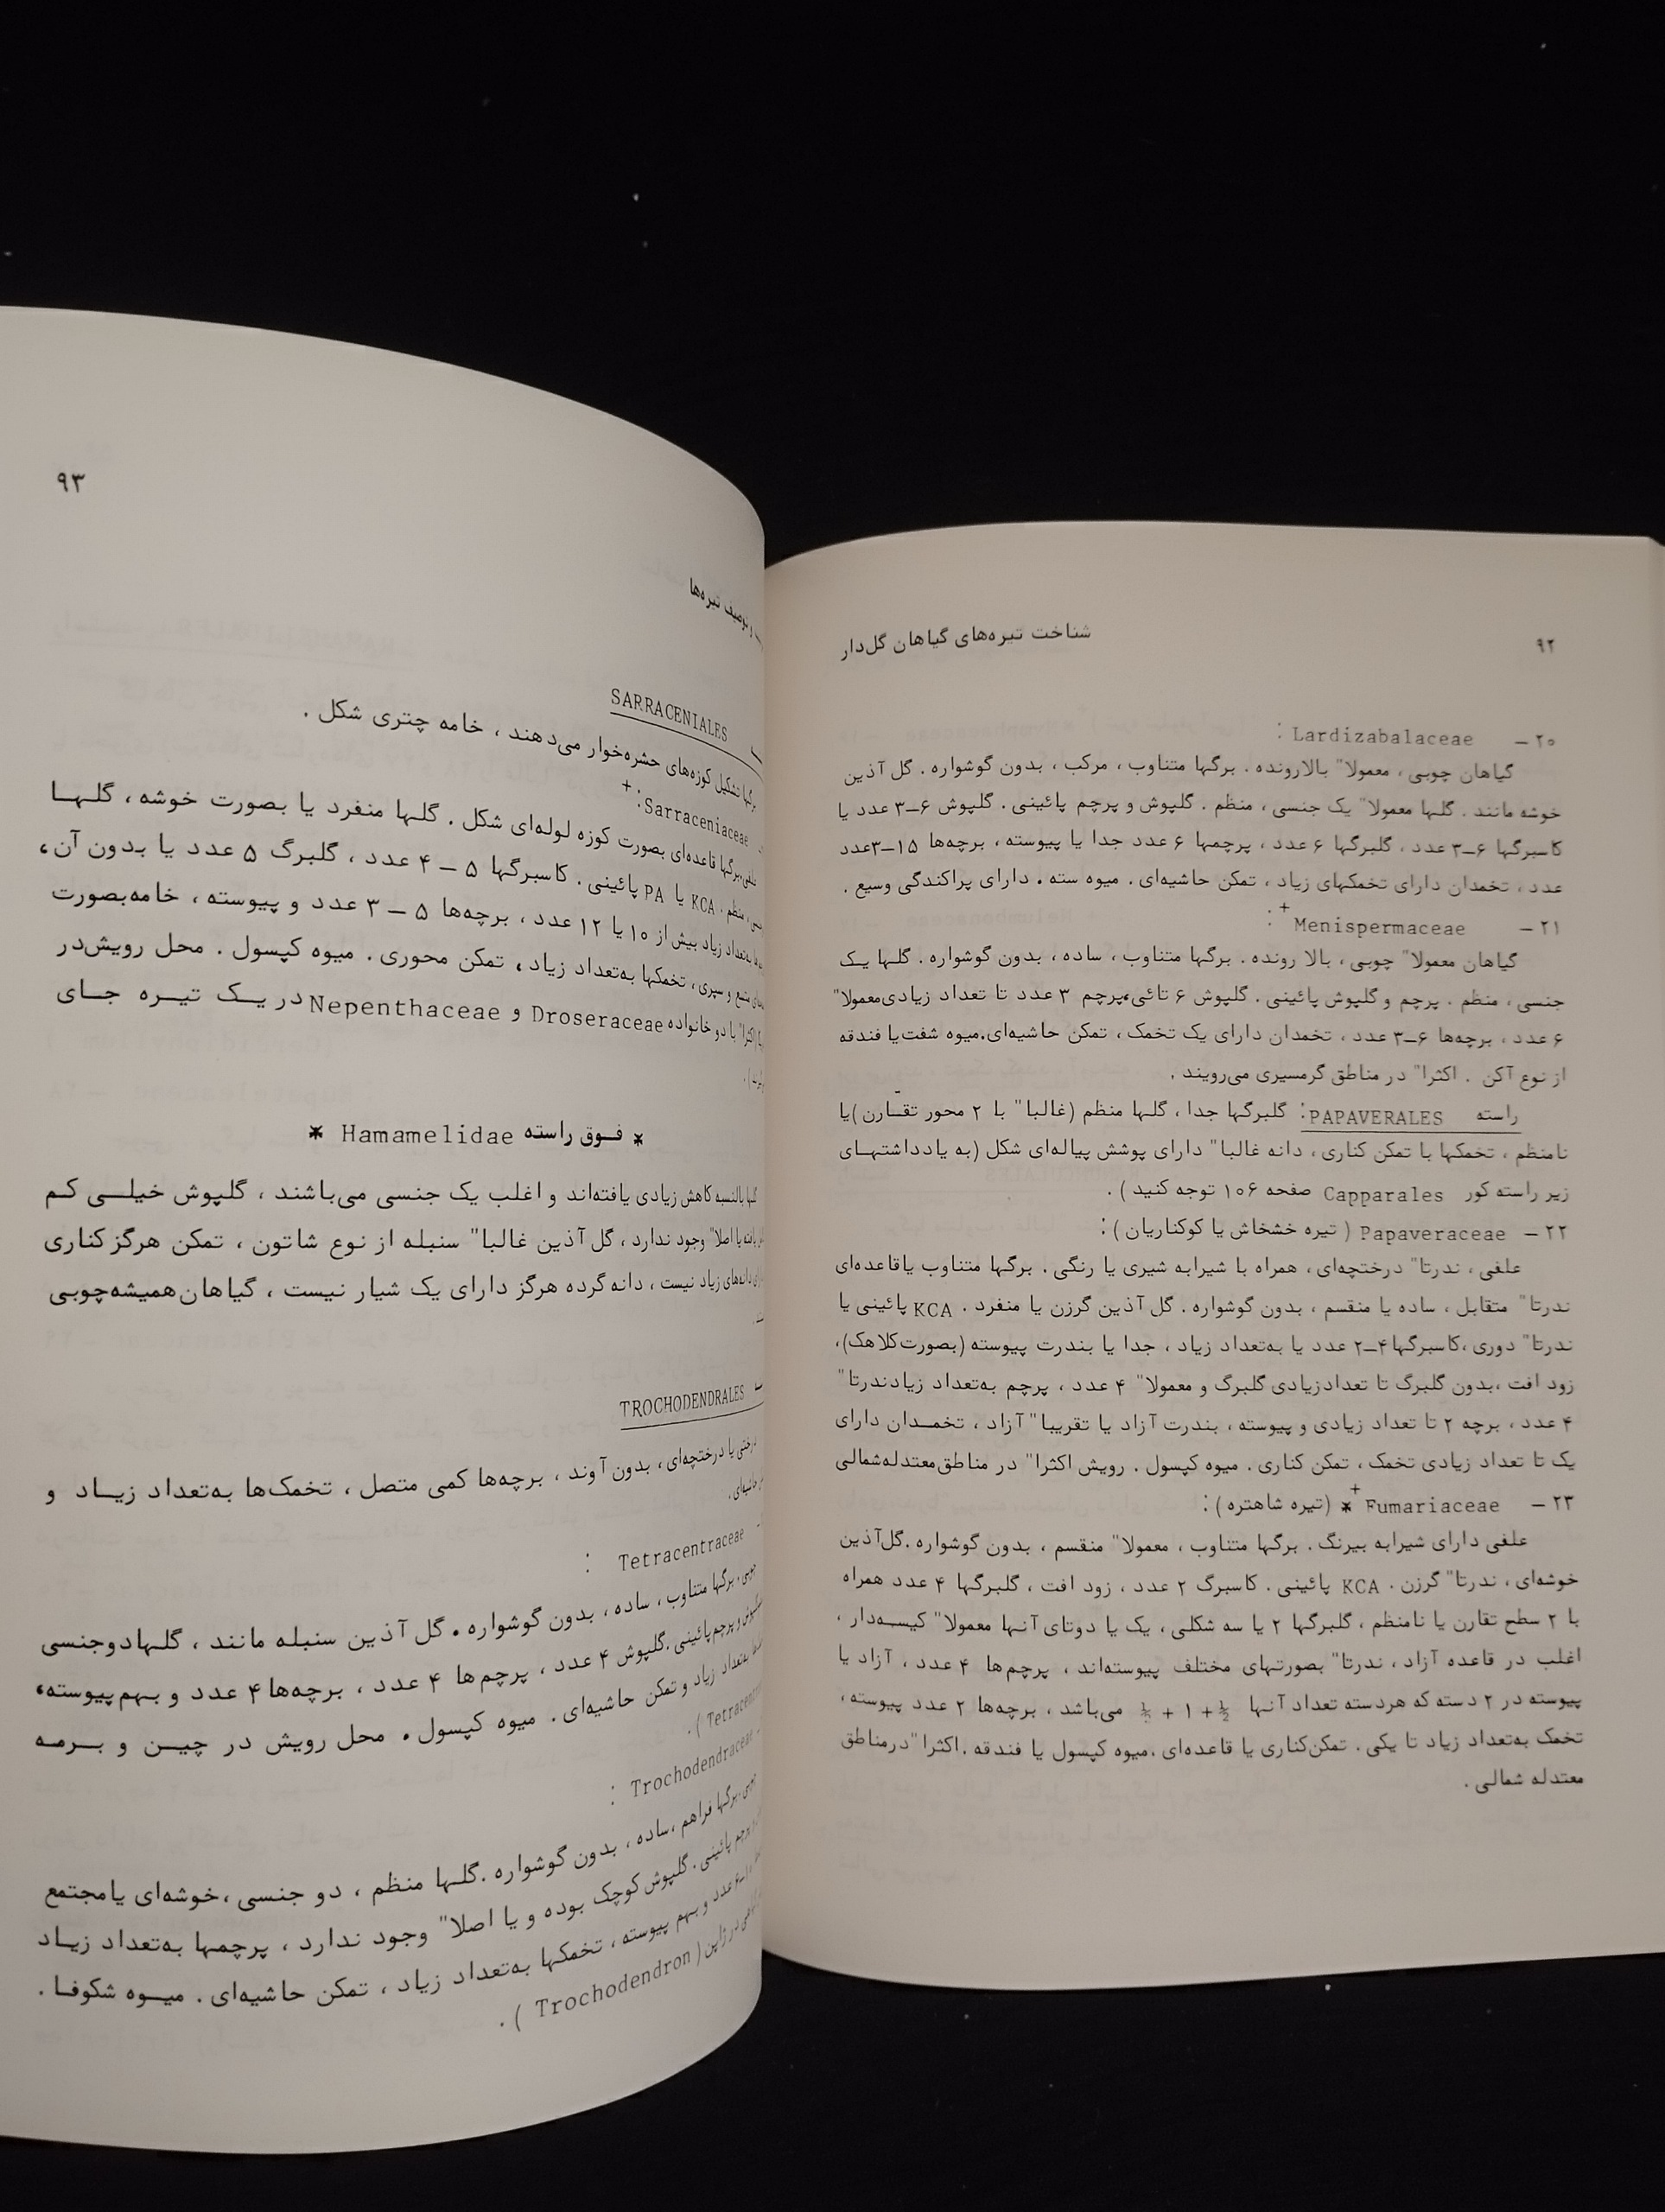 ۹۲
شناخت تیره‌های گیاهان گل‌دار
۲۰ – Lardizabalaceae :
گیاهان چوبی ، معمولا" بالارونده . برگها متناوب ، مرکب ، بدون گوشواره . گل آذین
خوشه مانند . گلها معمولا" یک جنسی ، منظم . گلپوش و پرچم پائینی . گلپوش ۶–۳ عدد یا
کاسبرگها ۶–۳ عدد ، گلبرگها ۶ عدد ، پرچمها ۶ عدد جدا یا پیوسته ، برچه‌ها ۱۵–۳عدد
عدد ، تخمدان دارای تخمکهای زیاد ، تمکن حاشیه‌ای . میوه سته . دارای پراکندگی وسیع .
۲۱ – Menispermaceae + :
گیاهان معمولا" چوبی ، بالا رونده . برگها متناوب ، ساده ، بدون گوشواره . گلها یـک
جنسی ، منظم . پرچم و گلپوش پائینی . گلپوش ۶ تائی،پرچم ۳ عدد تا تعداد زیادی‌معمولا"
۶ عدد ، برچه‌ها ۶–۳ عدد ، تخمدان دارای یک تخمک ، تمکن حاشیه‌ای.میوه شفت‌یا فندقه
از نوع آکن . اکثرا" در مناطق گرمسیری می‌رویند .
راسته PAPAVERALES: گلبرگها جدا ، گلها منظم (غالبا" با ۲ محور تقـارن )یا
نامنظم ، تخمکها با تمکن کناری ، دانه غالبا" دارای پوشش پیاله‌ای شکل (به یادداشتهـای
زیر راسته کور Capparales صفحه ۱۰۶ توجه کنید ) .
۲۲ – Papaveraceae ( تیره خشخاش یا کوکناریان ) :
علفی ، ندرتا" درختچه‌ای ، همراه با شیرابه شیری یا رنگی . برگها متناوب یاقاعده‌ای
ندرتا" متقابل ، ساده یا منقسم ، بدون گوشواره . گل آذین گرزن یا منفرد . KCA پائینی یا
ندرتا" دوری ،کاسبرگها۴–۲ عدد یا به‌تعداد زیاد ، جدا یا بندرت پیوسته (بصورت‌کلاهک)،
زود افت ،بدون گلبرگ تا تعدادزیادی گلبرگ و معمولا" ۴ عدد ، پرچم به‌تعداد زیادندرتا"
۴ عدد ، برچه ۲ تا تعداد زیادی و پیوسته ، بندرت آزاد یا تقریبا" آزاد ، تخمـدان دارای
یک تا تعداد زیادی تخمک ، تمکن کناری . میوه کپسول . رویش اکثرا" در مناطق‌معتدله‌شمالی
۲۳ – Fumariaceae + * (تیره شاهتره ) :
علفی دارای شیرابه بیرنگ . برگها متناوب ، معمولا" منقسم ، بدون گوشواره .گل‌آذین
خوشه‌ای ، ندرتا" گرزن . KCA پائینی . کاسبرگ ۲ عدد ، زود افت ، گلبرگها ۴ عدد همراه
با ۲ سطح تقارن یا نامنظم ، گلبرگها ۲ یا سه شکلی ، یک یا دوتای آنها معمولا" کیسـه‌دار ،
اغلب در قاعده آزاد ، ندرتا" بصورتهای مختلف پیوسته‌اند ، پرچم‌ها ۴ عدد ، آزاد یا
پیوسته در ۲ دسته که هردسته تعداد آنها ½ + ۱ + ½ می‌باشد ، برچه‌ها ۲ عدد پیوسته ،
تخمک به‌تعداد زیاد تا یکی . تمکن‌کناری یا قاعده‌ای .میوه کپسول یا فندقه .اکثرا"درمناطق
معتدله شمالی .
۹۳
و توصیف تیره‌ها
SARRACENIALES
برگها تشکیل کوزه‌های حشره‌خوار می‌دهند ، خامه چتری شکل .
Sarraceniaceae + :
علفی،برگها قاعده‌ای بصورت کوزه لوله‌ای شکل . گلها منفرد یا بصورت خوشه ، گلهـا
منظم . KCA یا PA پائینی . کاسبرگها ۵ – ۴ عدد ، گلبرگ ۵ عدد یا بدون آن،
به‌تعداد زیاد بیش از ۱۰ یا ۱۲ عدد ، برچه‌ها ۵ – ۳ عدد و پیوسته ، خامه‌بصورت
و سپری ، تخمکها به‌تعداد زیاد ، تمکن محوری . میوه کپسول . محل رویش‌در
اکثرا" با دو خانواده Droseraceae و Nepenthaceae در یـک تیـره جـای
* فـوق راسته Hamamelidae *
گلها بالنسبه کاهش زیادی یافته‌اند و اغلب یک جنسی می‌باشند ، گلپوش خیلـی کـم
یافته یا اصلا" وجود ندارد ، گل آذین غالبا" سنبله از نوع شاتون ، تمکن هرگز کناری
دانه‌های زیاد نیست ، دانه گرده هرگز دارای یک شیار نیست ، گیاهان‌همیشه‌چوبی
TROCHODENDRALES
درختی یا درختچه‌ای ، بدون آوند ، برچه‌ها کمی متصل ، تخمک‌ها به‌تعداد زیـاد و
حاشیه‌ای .
Tetracentraceae :
برگها متناوب ، ساده ، بدون گوشواره . گل آذین سنبله مانند ، گلهادوجنسی
و پرچم پائینی .گلپوش ۴ عدد ، پرچم‌ها ۴ عدد ، برچه‌ها ۴ عدد و بهم‌پیوسته،
به‌تعداد زیاد و تمکن حاشیه‌ای . میوه کپسول . محل رویش در چیـن و بـرمـه
Trochodendraceae :
برگها فراهم ،ساده ، بدون گوشواره .گلها منظم ، دو جنسی ،خوشه‌ای یامجتمع
پرچم پائینی . گلپوش کوچک بوده و یا اصلا" وجود ندارد ، پرچمها به‌تعداد زیـاد
عدد و بهم پیوسته ، تخمکها به‌تعداد زیاد ، تمکن حاشیه‌ای . میـوه شکوفـا .
در ژاپن ( Trochodendron ) .